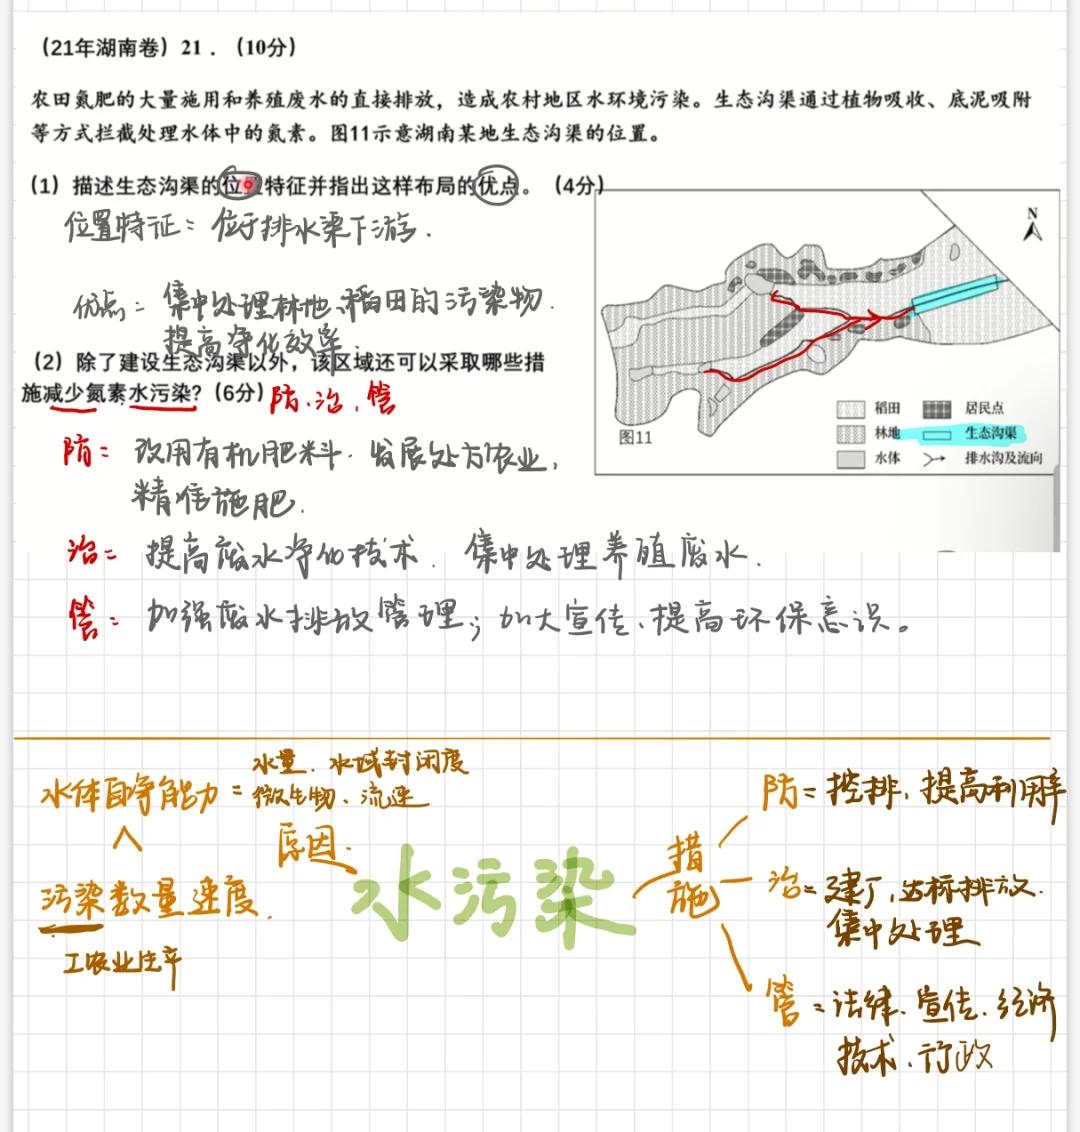 （21年湖南卷）21．（10分）
农田氮肥的大量施用和养殖废水的直接排放，造成农村地区水环境污染。生态沟渠通过植物吸收、底泥吸附
等方式拦截处理水体中的氮素。图11示意湖南某地生态沟渠的位置。
（1）描述生态沟渠的位置特征并指出这样布局的优点。（4分）
位置特征：位于排水渠下游.
优点：集中处理林地、稻田的污染物.
提高净化效率.
（2）除了建设生态沟渠以外，该区域还可以采取哪些措
施减少氮素水污染?（6分）防、治、管
N
稻田 居民点
林地 生态沟渠
水体 排水沟及流向
图11
防：改用有机肥料. 发展处方农业,
精准施肥.
治：提高废水净化技术. 集中处理养殖废水.
管：加强废水排放管理；加大宣传、提高环保意识。
水体自净能力：水量、水域封闭度
微生物、流速
原因.
污染数量速度.
工农业生产
水污染
措施
防：控排，提高利用率
治：建厂，达标排放.
集中处理
管：法律、宣传、经济
技术、行政